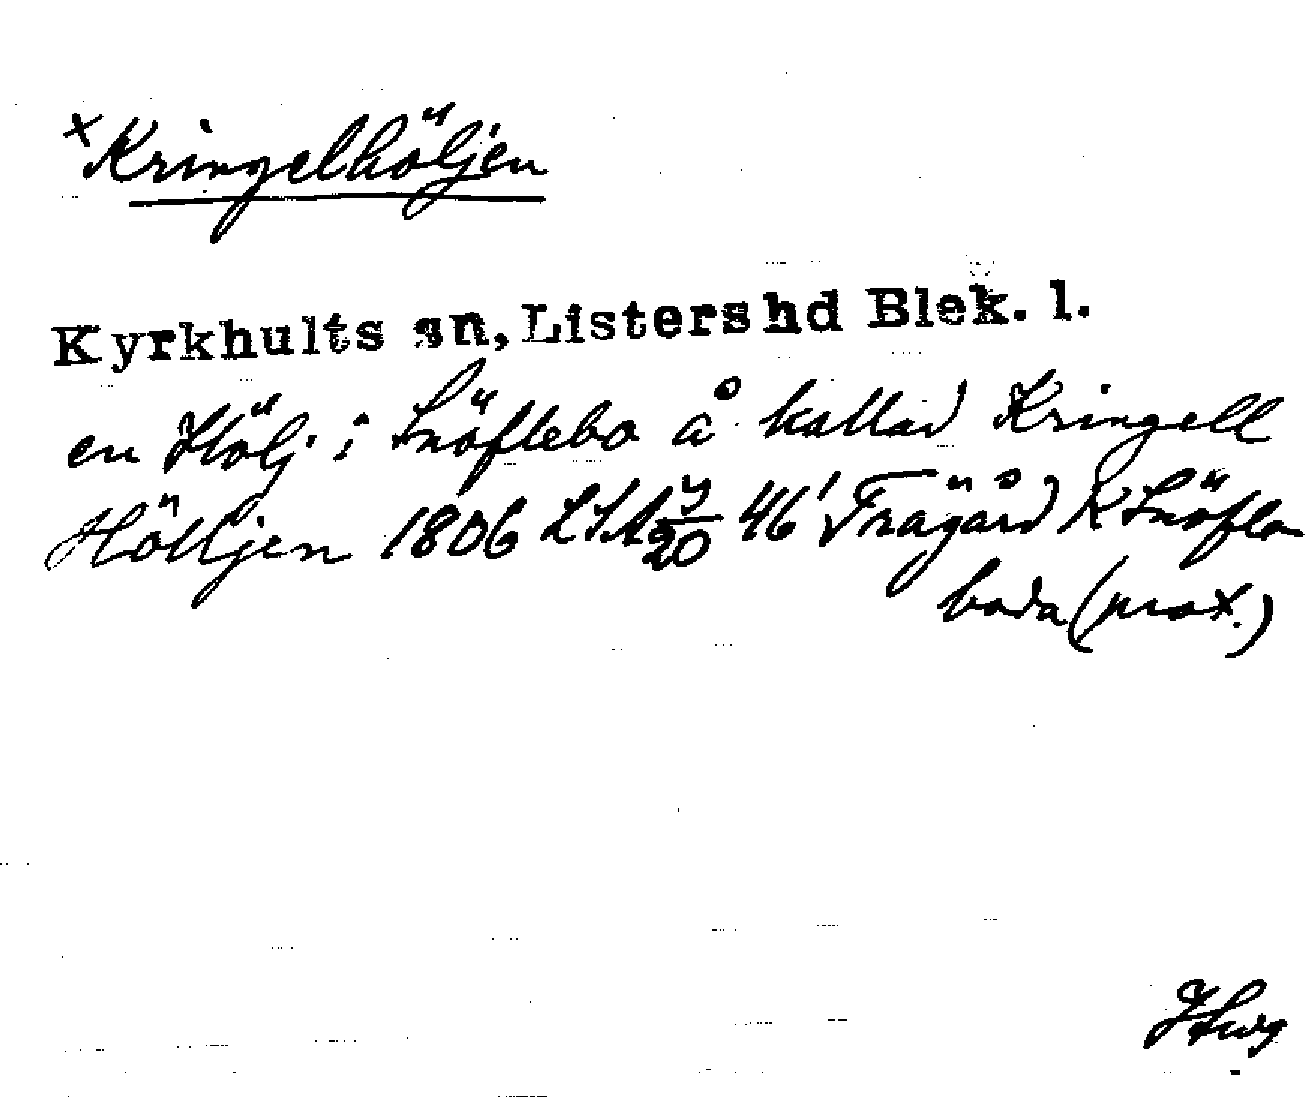 x Kringelhöljen
Kyrkhults sn, Listers hd Blek. l.
en Hölj i Snöflebo å kallad Kringell
Hölljen 1806 LSA 7/20 46' Trägård K Snöfle
boda (prot.)